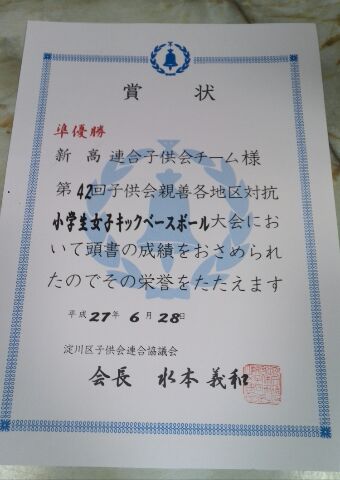 賞状
準優勝
新高連合子供会チーム様
第42回子供会親善各地区対抗
小学生女子キックベースボール大会にお
いて頭書の成績をおさめられ
たのでその栄誉をたたえます
平成27年6月28日
淀川区子供会連合協議会
会長 水本義和